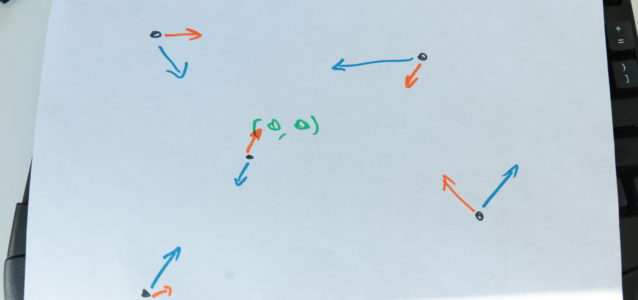 (0, 0)
+
=
}
]